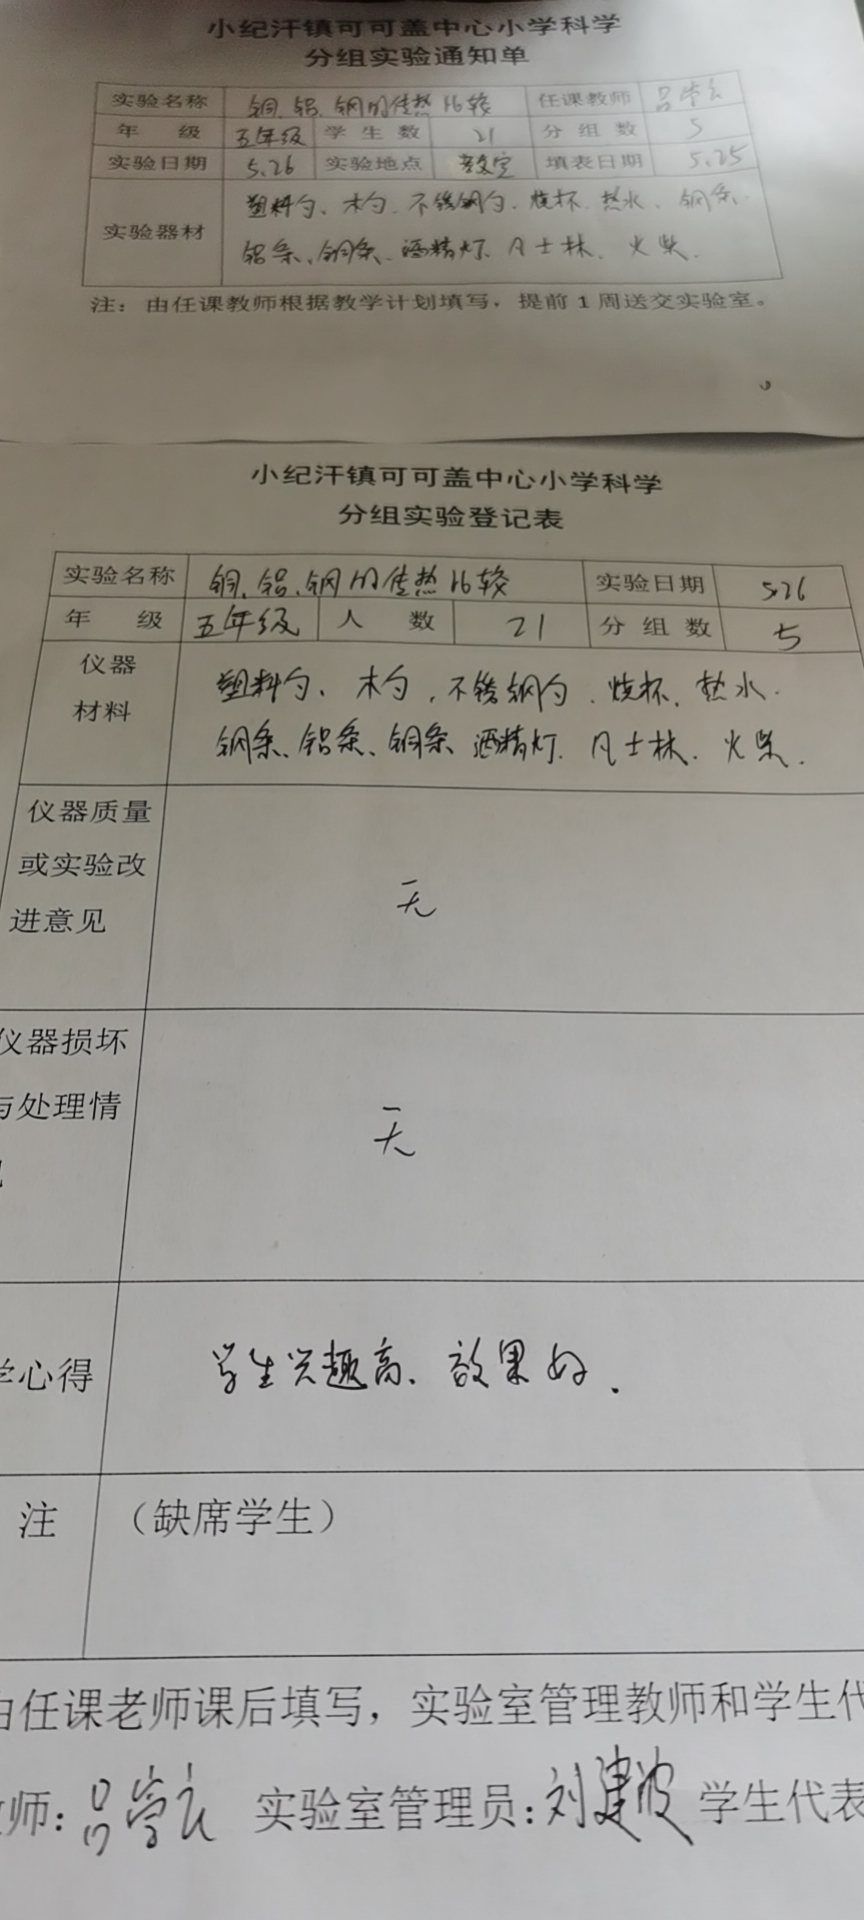 小纪汗镇可可盖中心小学科学
分组实验通知单
实验名称 铜、铝、钢的传热比较 任课教师
年 级 五年级 学生数 21 分组数 5
实验日期 5.26 实验地点 教室 填表日期 5.25
实验器材 塑料勺、木勺、不锈钢勺、烧杯、热水、钢条、
铝条、铜条、酒精灯、凡士林、火柴.
注：由任课教师根据教学计划填写，提前1周送交实验室。
小纪汗镇可可盖中心小学科学
分组实验登记表
实验名称 铜、铝、钢的传热比较 实验日期 5.26
年 级 五年级 人 数 21 分组数 5
仪器 塑料勺、木勺、不锈钢勺、烧杯、热水.
材料 钢条、铝条、铜条 酒精灯、凡士林、火柴.
仪器质量
或实验改 无
进意见
仪器损坏
与处理情 无
学心得 学生兴趣高、效果好.
注 （缺席学生）
由任课老师课后填写，实验室管理教师和学生代
师: 实验室管理员:刘建波 学生代表